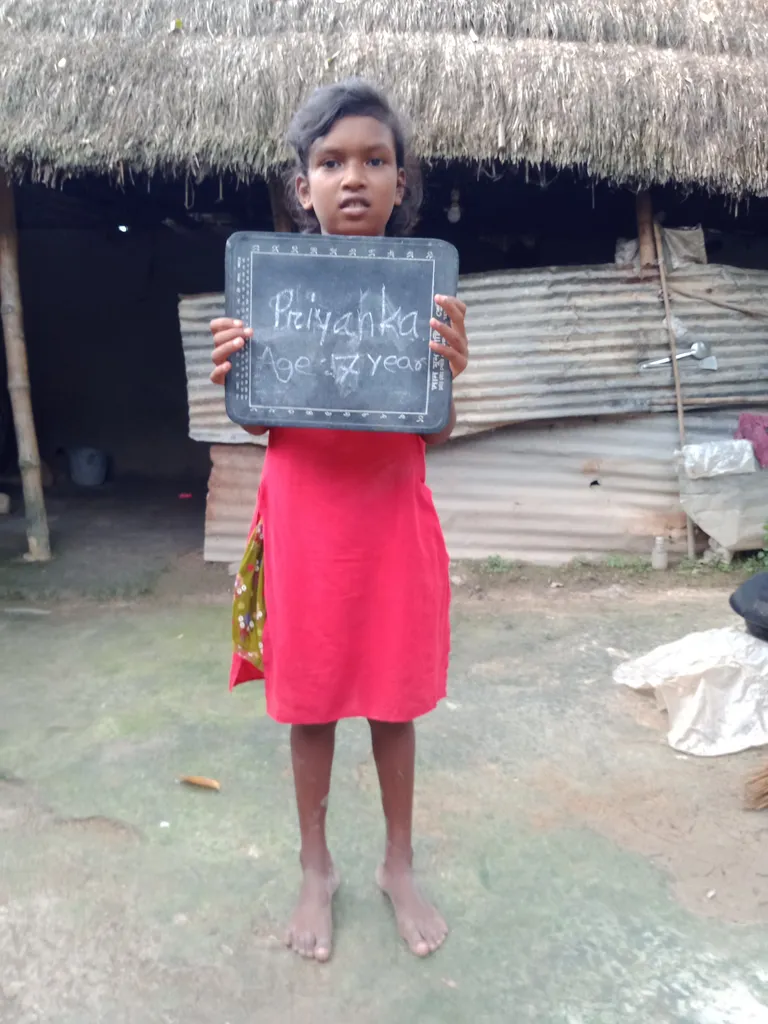 Priyanka
Age : 7 year